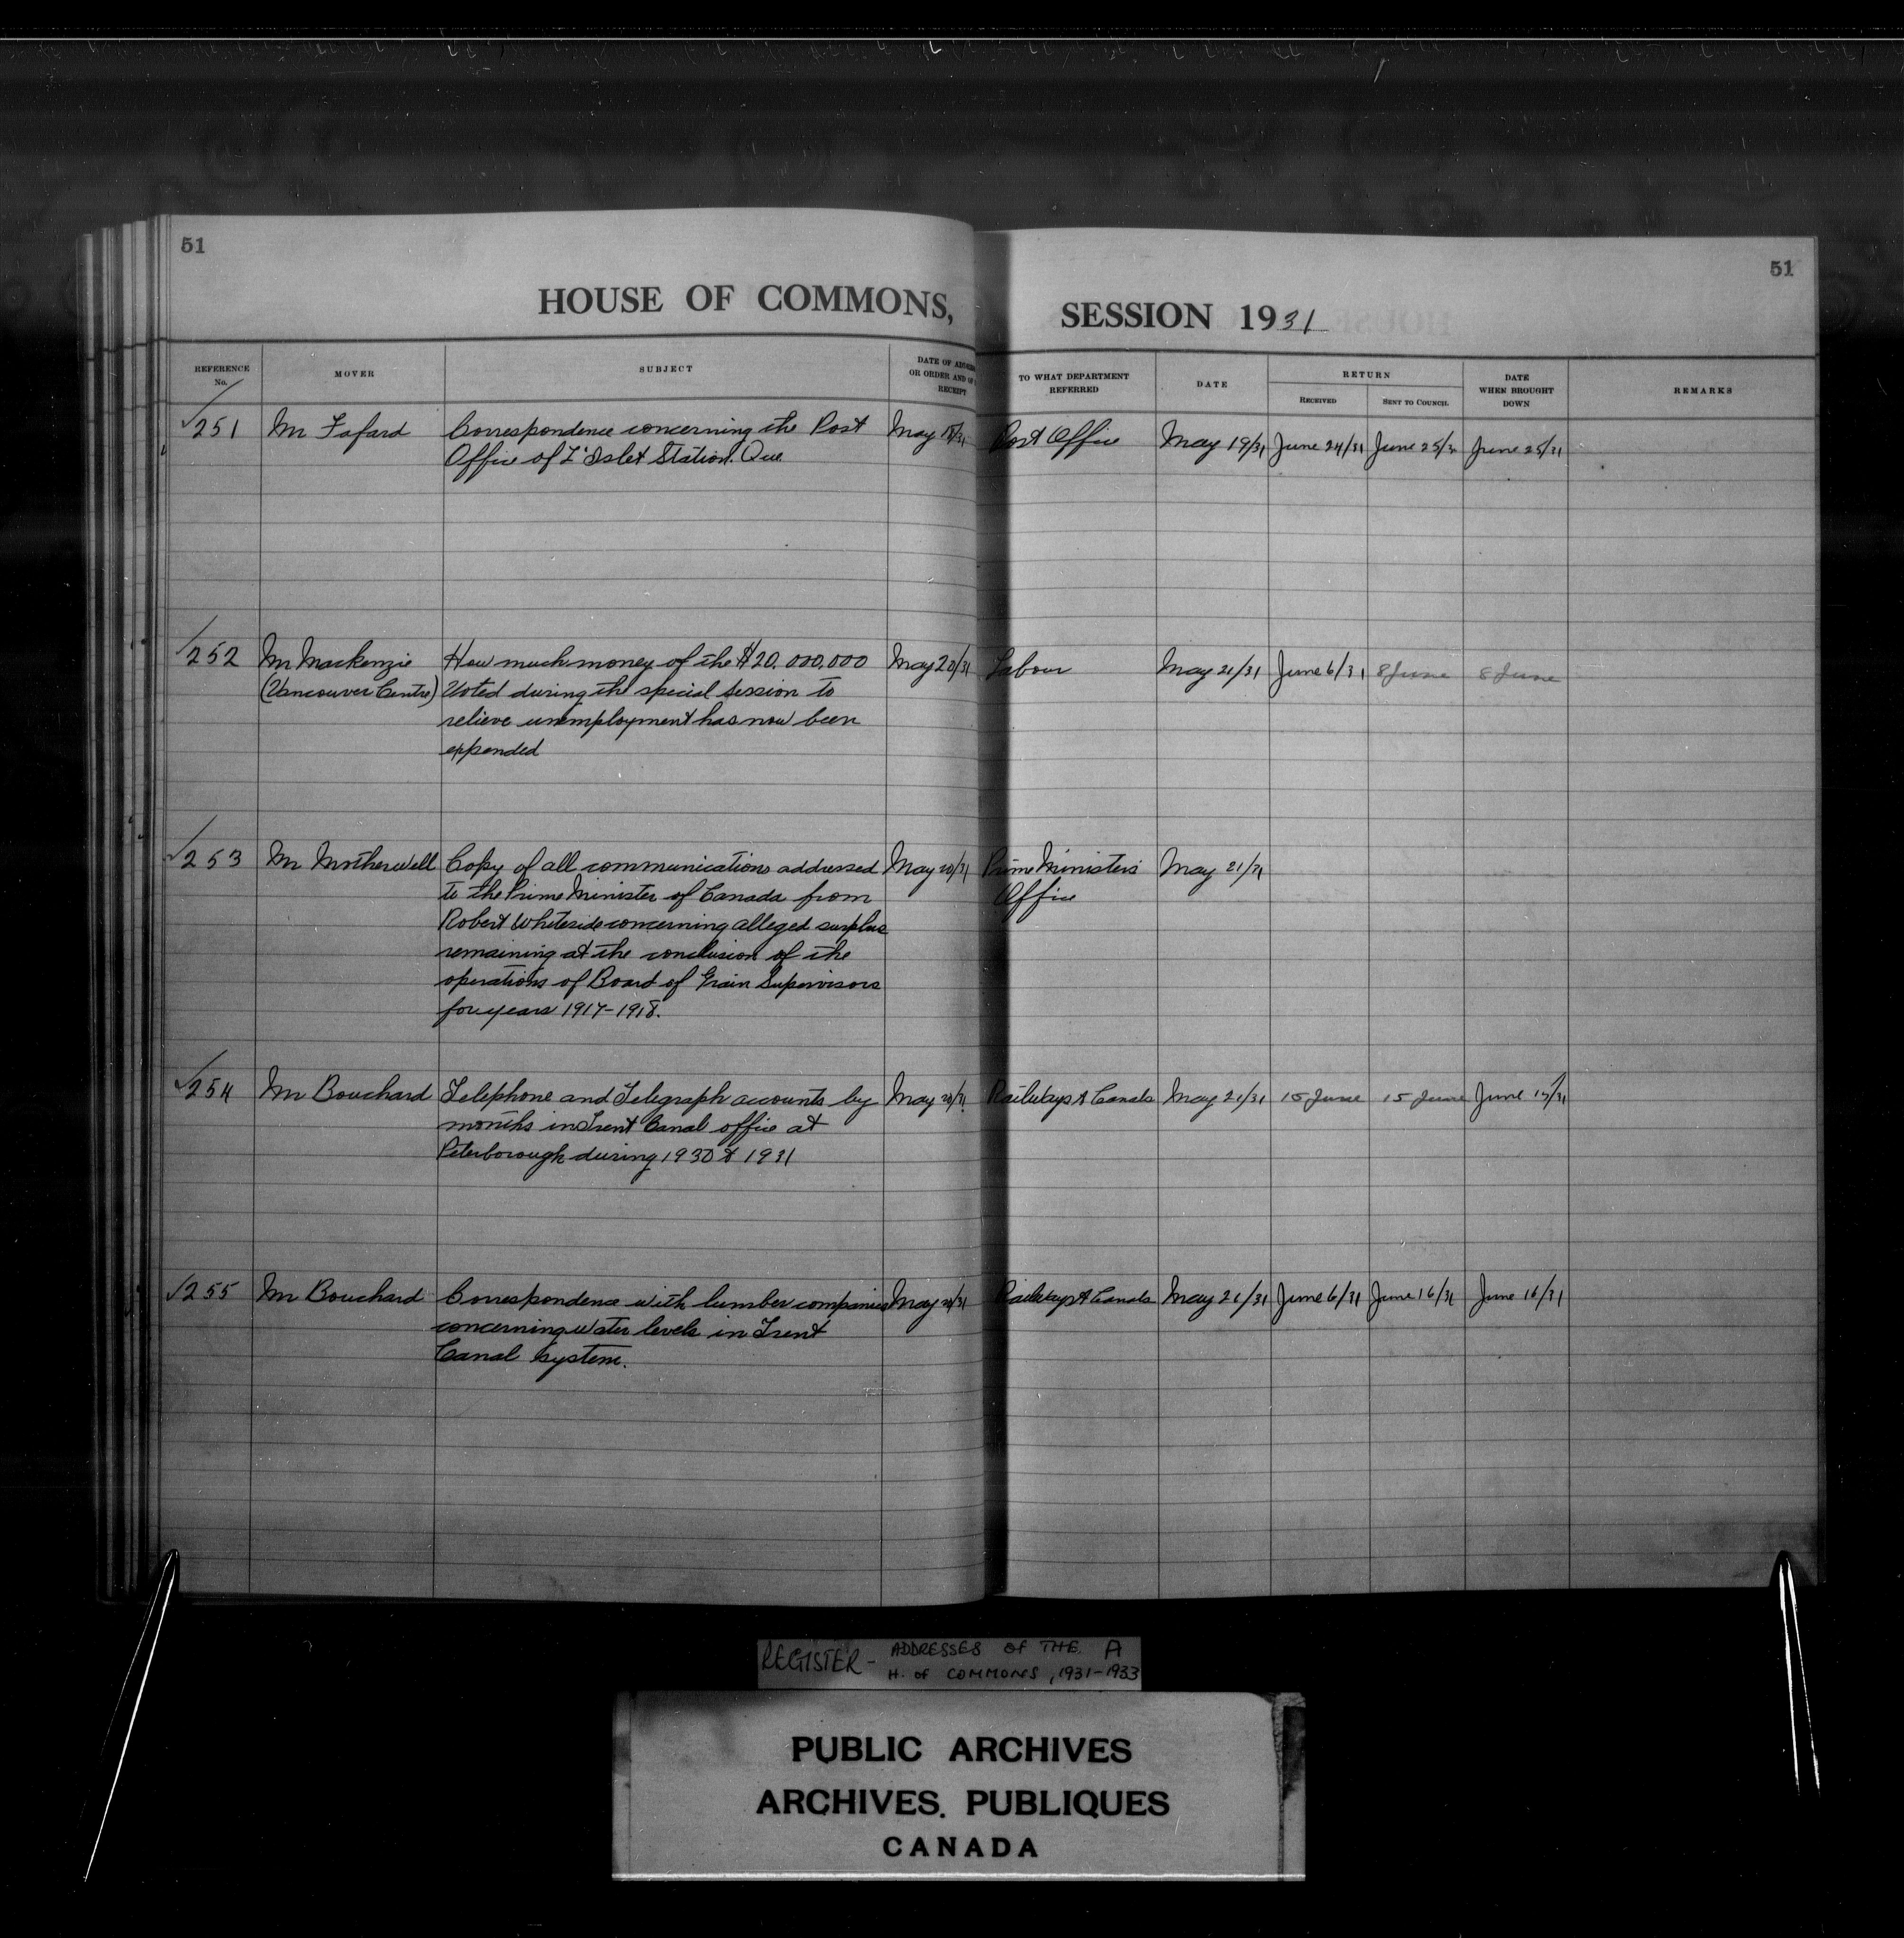 51
51
HOUSE OF COMMONS, SESSION 1931
REFERENCE No.
MOVER
SUBJECT
DATE OF ADDRESS OR ORDER AND OF RECEIPT
TO WHAT DEPARTMENT REFERRED
DATE
RETURN
RECEIVED
SENT TO COUNCIL
DATE WHEN BROUGHT DOWN
REMARKS
251 Mr Fafard Correspondence concerning the Post May 18/31 Post Office May 19/31 June 24/31 June 25/31 June 25/31
Office of L'Islet Station. Que
252 Mr Mackenzie How much money of the $20.000.000 May 20/31 Labour May 21/31 June 6/31 8 June 8 June
(Vancouver Centre) Voted during the special session to
relieve unemployment has now been
expended
253 Mr Motherwell Copy of all communications addressed May 20/31 Prime Ministers May 21/31
to the Prime Minister of Canada from Office
Robert Whiteside concerning alleged surplus
remaining at the conclusion of the
operations of Board of Grain Supervisors
for years 1917-1918.
254 Mr Bouchard Telephone and Telegraph accounts by May 20/31 Railways & Canals May 21/31 15 June 15 June June 15/31
months in Trent Canal office at
Peterborough during 1930 & 1931
255 Mr Bouchard Correspondence with lumber companies May 20/31 Railways & Canals May 21/31 June 6/31 June 16/31 June 16/31
concerning water levels in Trent
Canal system.
REGISTER - ADDRESSES OF THE A
H. OF COMMONS, 1931-1933
PUBLIC ARCHIVES
ARCHIVES PUBLIQUES
CANADA